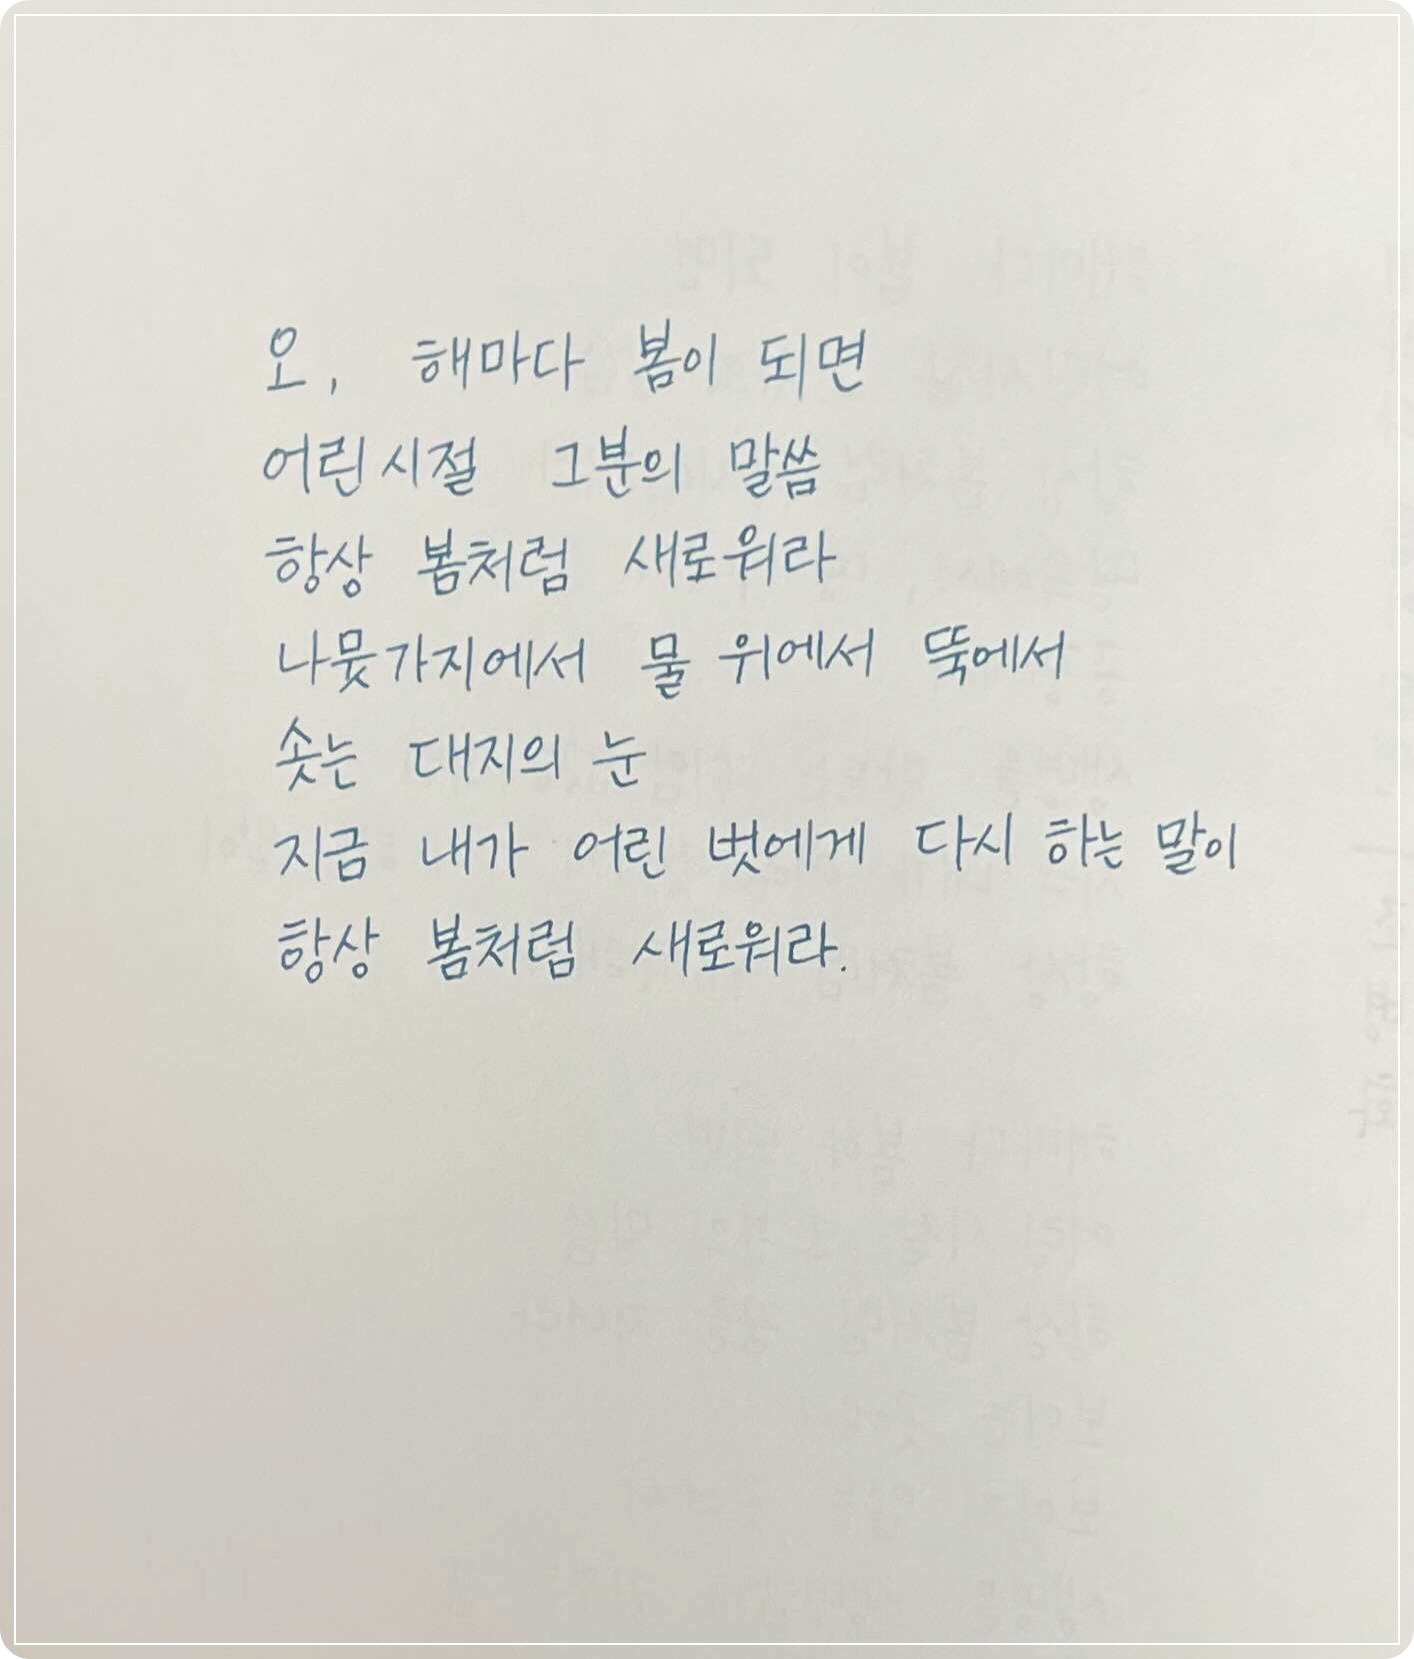 오, 해마다 봄이 되면
어린시절 그분의 말씀
항상 봄처럼 새로워라
나뭇가지에서 물 위에서 뚝에서
솟는 대지의 눈
지금 내가 어린 벗에게 다시 하는 말이
항상 봄처럼 새로워라.